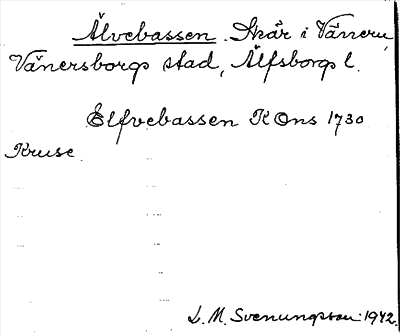 Älvebassen. Skär i Vänern,
Vänersborgs stad, Älfsborgs l.
Elfvebassen K Ons 1730
Kruse
L. M. Svenungsson 1942.